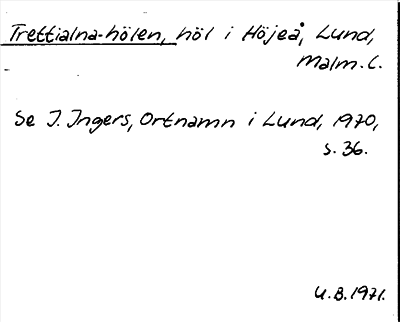 Trettialna-hölen, höl i Höjeå, Lund,
Malm. L.
Se I. Ingers, Ortnamn i Lund, 1970,
s. 36.
U.B. 1971.